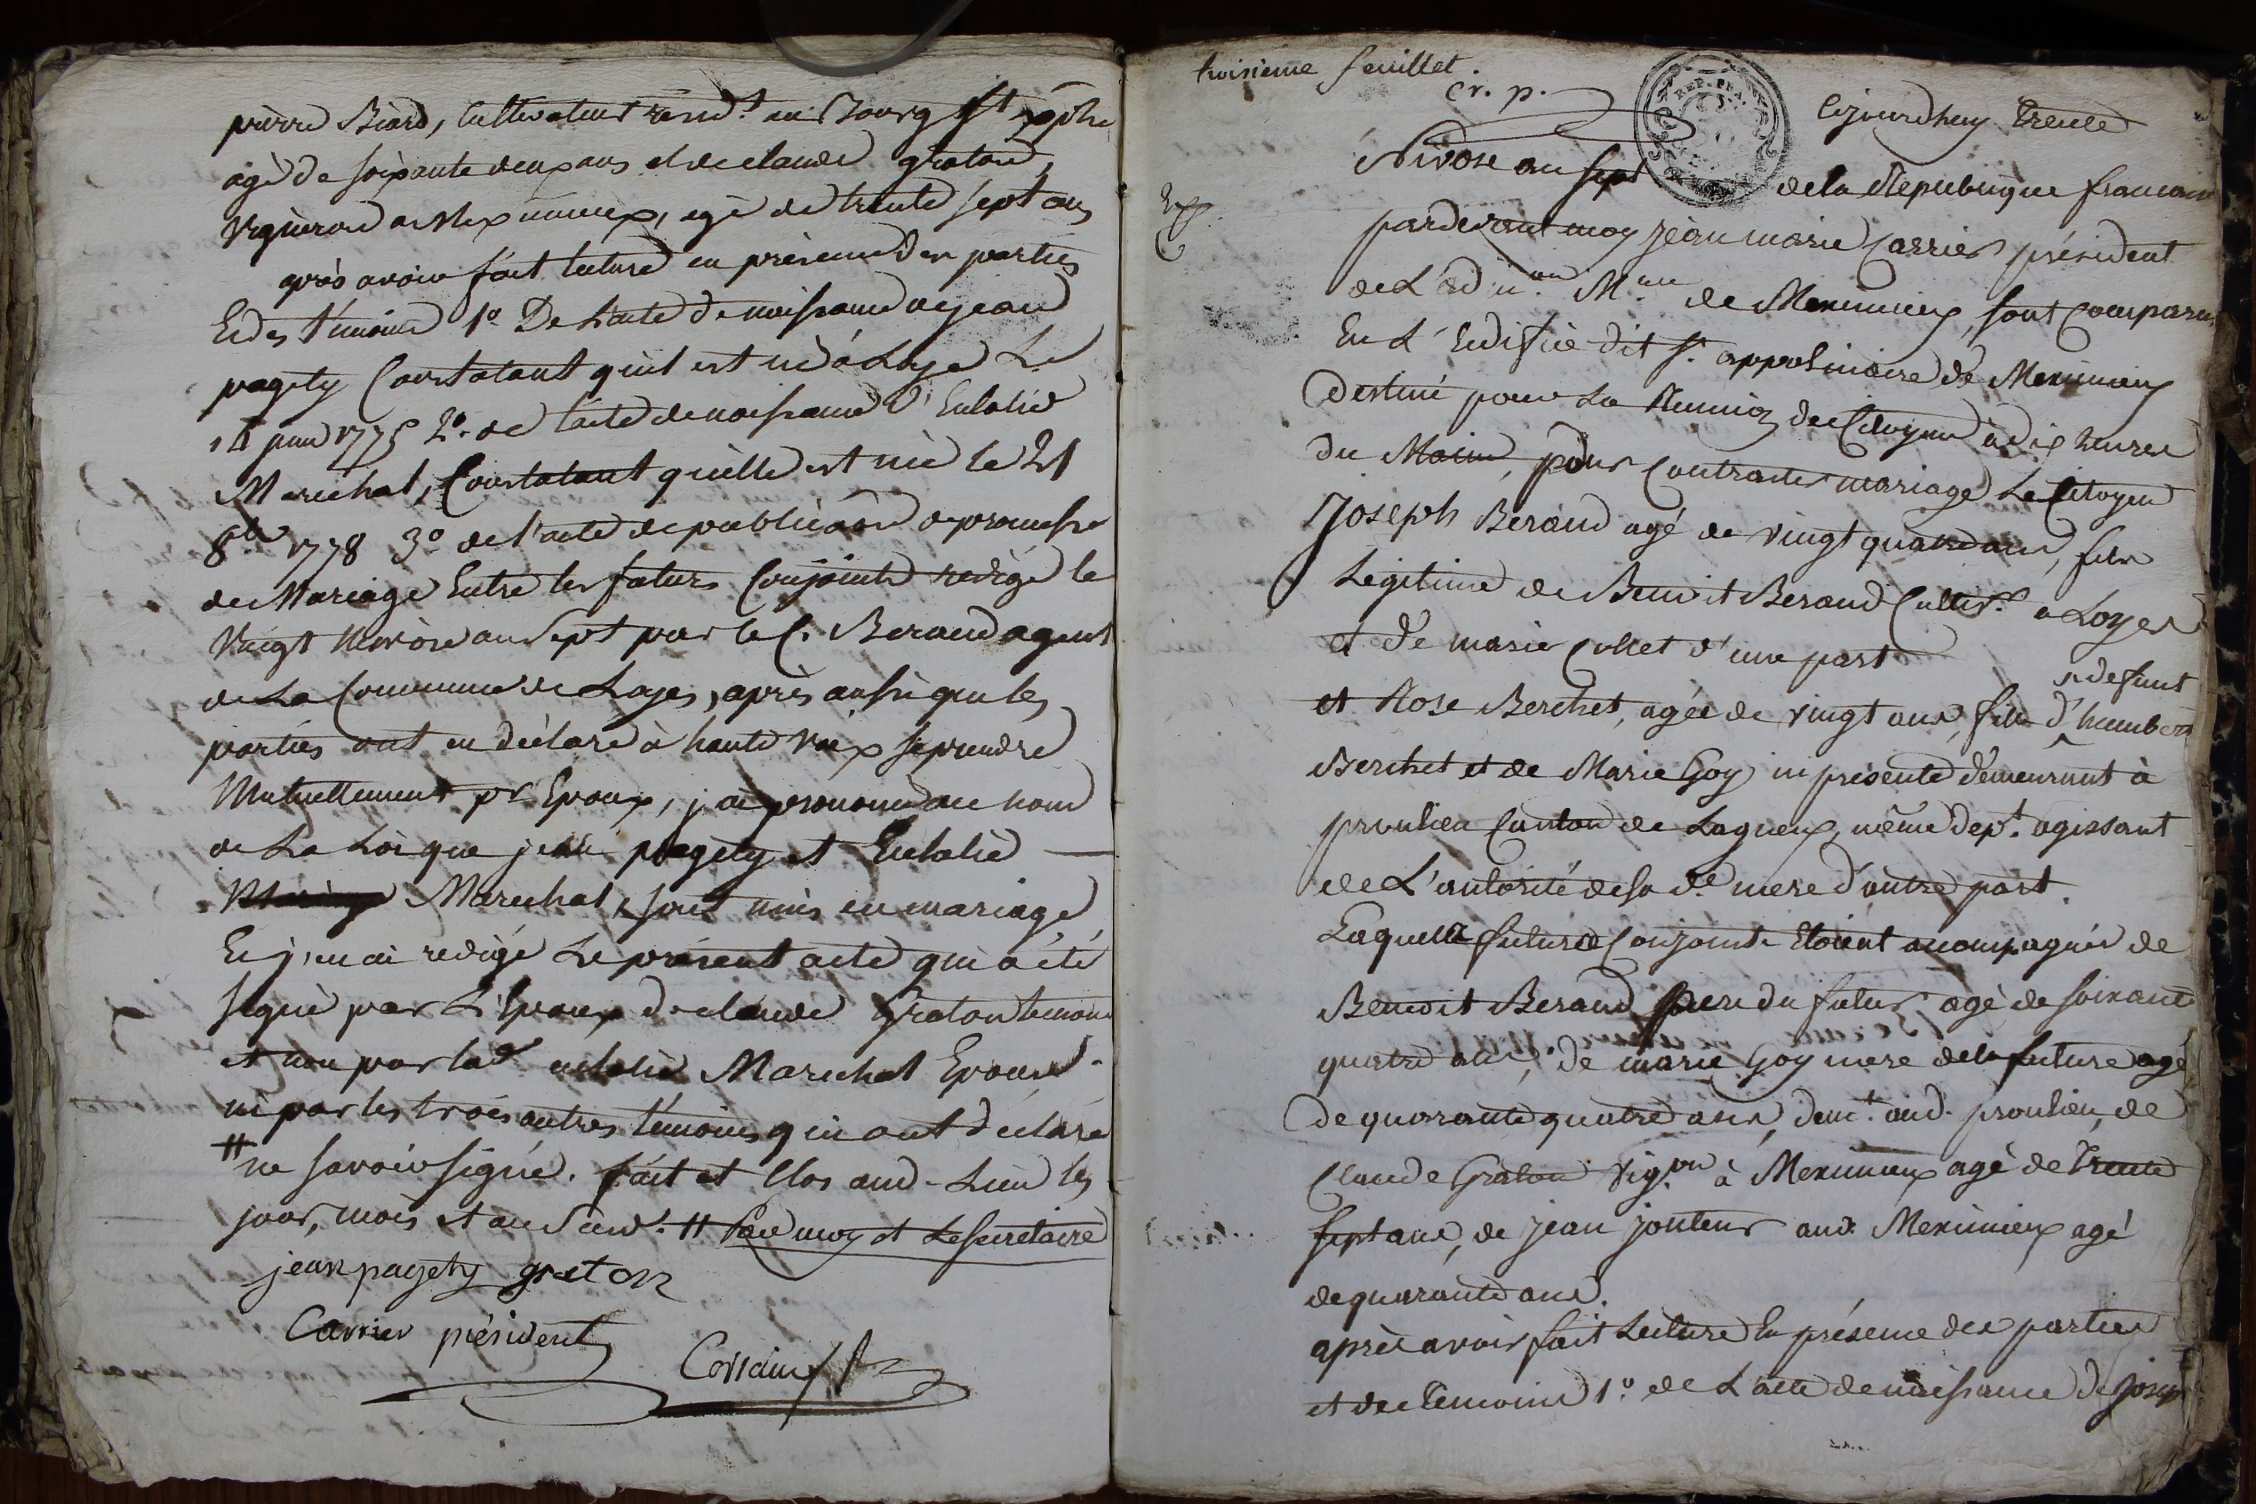 pierre Biard, Cultivateur résid.t au Bourg St
agé de soixante deux ans et de claude graton,
Vigneron a Meximieux, agé de trente sept ans
après avoir fait lecture en présence des parties
Et des témoins 1.o De l'acte de naissance de jean
pagety Constatant qu'il est né à Loye Le
14 juin 1775 2.o de l'acte de naissance d'Eulalie
Marechal, Constatant qu'elle est née le 21
8bre 1778 3.o de l'acte de publication de promesse
de Mariage Entre les futurs Conjoints redigé le
Vingt Nivôse an Sept par le C. Beraud agent
de La Commune de Loyes, après aussi que les
parties ont eu déclaré à haute voix se prendre
Mutuellement pr Epoux, j'ai prononcé au nom
de La Loi que jean pagety et Eulalie
Marechal, sont unis en mariage
Et j'en ai redigé Le présent acte qui a été
signé par L'Epoux de claude Graton temoin
et non par lad. eulalie Marechal Epouse
ni par les trois autres témoins qui ont déclaré
# ne savoir signé. fait et Clos aud. Lieu les
jour, mois et an susd. # Par moy et Le Secretaire
jean pagety graton
Carrier président
Corsain
troisieme feuillet.
Cr. p.
REP. FRA.
Cejourdhuy Trente
Nivose an sept de la Republique francaise
pardevant moy jean marie Carrier président
de L'ad.on M.le de Meximieux, sont Comparus
En L'Edifice dit St. appolinaire de Meximieux
Destiné pour La Reunion des Citoyens à dix heures
du Matin, pour Contracter mariage Le Citoyen
Joseph Beraud agé de vingt quatre ans, fils
Legitime de Benoit Beraud Cultiv.r a Loyes
et de marie Collet d'une part
et Rose Berchet, agée de vingt ans, fille d'humbert
defunt
Berchet et de Marie Goy ici présente demeurant à
proulieu Canton de Lagnieux, même dept. agissant
de L'autorité de sa de. mere d'autre part.
Laquelle futurs Conjoints Etoient accompagnés de
Benoit Beraud pere du futur agé de soixante
quatre ans, de marie Goy mere de la future agé
de quarante quatre ans, demt. aud. proulieu, de
Claude Graton Vig.on à Meximieux agé de Trente
sept ans, de jean jonteur aud. Meximieux agé
de quarante ans.
après avoir fait Lecture En présence des parties
et des Temoins 1.o de L'acte de naissance de Joseph